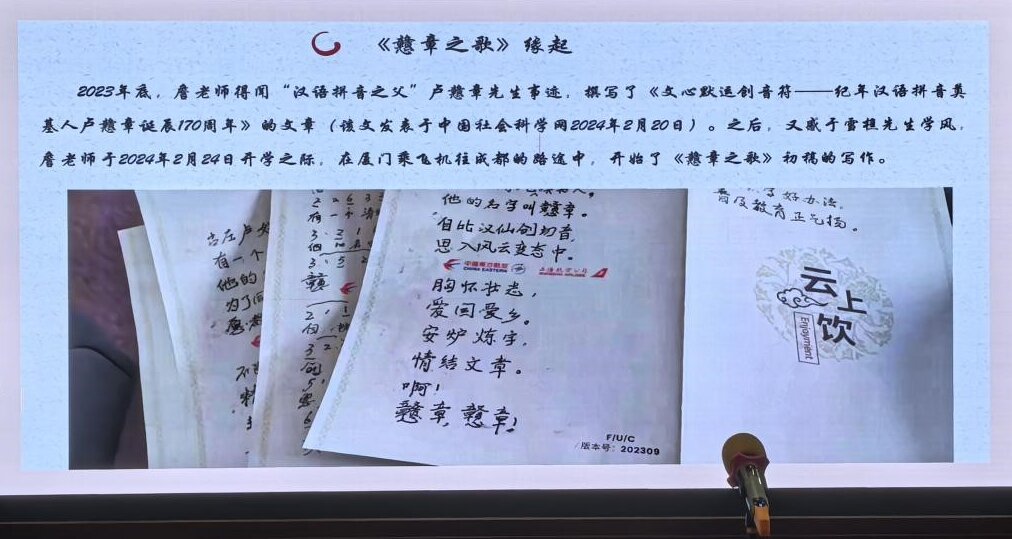 《戇章之歌》缘起
2023年底，詹老师得闻“汉语拼音之父”卢戇章先生事迹，撰写了《文心默运创音符——纪年汉语拼音奠
基人卢戇章诞辰170周年》的文章（该文发表于中国社会科学网2024年2月20日）。之后，又感于雪担先生学风，
詹老师于2024年2月24日开学之际，在厦门乘飞机往成都的路途中，开始了《戇章之歌》初稿的写作。
有一个
他的
为了
他的名字叫戇章。
自比汉仙创切音，
思入风云变态中。
中国东方航空
CHINA EASTERN
上海航空公司
SHANGHAI AIRLINES
胸怀壮志，
爱国爱乡。
安炉炼字，
情结文章。
啊！
戇章，戇章！
F/U/C
版本号：202309
好办法。
普及教育正气扬。
云上饮
Enjoyment